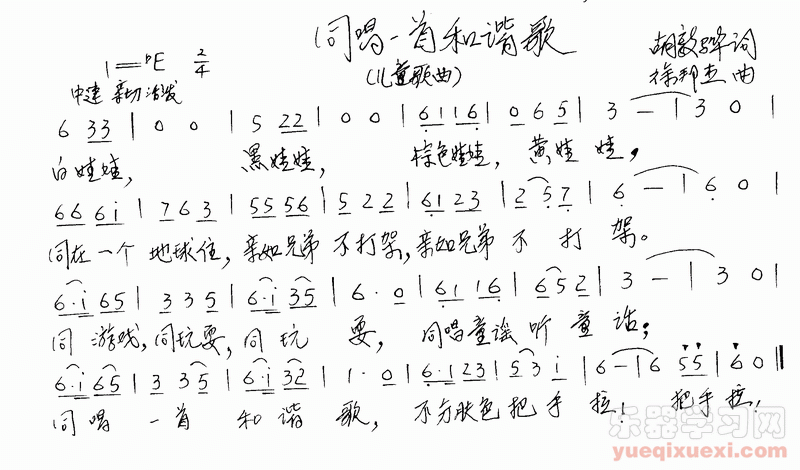 同唱一首和谐歌
(儿童歌曲)
1=bE 2/4
中速 亲切 活泼
胡敦骅 词
徐邦杰 曲
6 33 | 0 0 | 5 22 | 0 0 | 6116 | 0 6 5 | 3 — | 3 0 |
白娃娃, 黑娃娃, 棕色娃娃, 黄娃娃,
66 6i | 7 6 3 | 55 56 | 5 2 2 | 61 23 | 2 57 | 6 — | 6 0 |
同在一个地球住,亲如兄弟不打架,亲如兄弟不打架。
6·i 65 | 3 3 5 | 6·i 35 | 6· 0 | 61 16 | 6 5 2 | 3 — | 3 0 |
同游戏,同玩耍,同玩耍,同唱童谣听童话;
6·i 65 | 3 3 5 | 6·i 32 | 1· 0 | 6·1 23 | 5 3 i | 6 — | 6 55 | 6 0 ‖
同唱一首和谐歌,不分肤色把手拉!把手拉!
乐器学习网
yueqixuexi.com